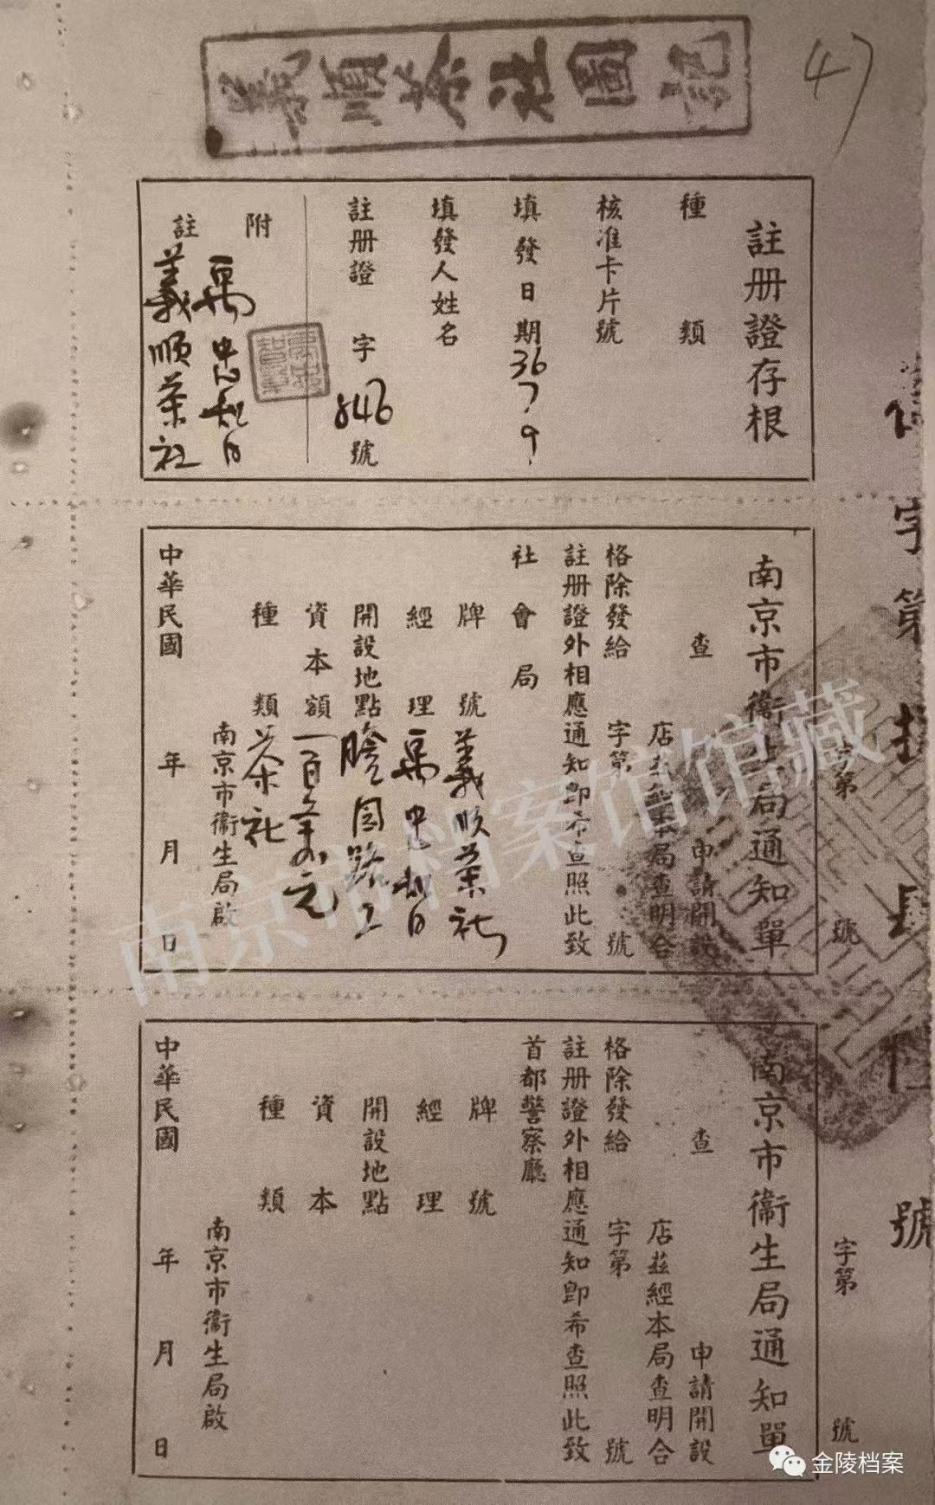 義順茶社圖記
47
註册證存根
種類
核准卡片號
填發日期36 7 9
填發人姓名
註册證 字846號
附註
禹忠
義順茶社
南京市衞生局通知單
查 申請開設
店茲經本局查明合
格除發給 字第 號
註册證外相應通知卽希查照此致
社會局
牌號義順茶社
經理禹忠
開設地點瞻園路
資本額一百萬元
種類茶社
南京市衞生局啟
中華民國 年 月 日
字第 號
南京市衞生局通知單
查 申請開設
店茲經本局查明合
格除發給 字第 號
註册證外相應通知卽希查照此致
首都警察廳
牌號
經理
開設地點
資本
種類
南京市衞生局啟
中華民國 年 月 日
字第 號
字第
號
南京市档案馆馆藏
金陵档案